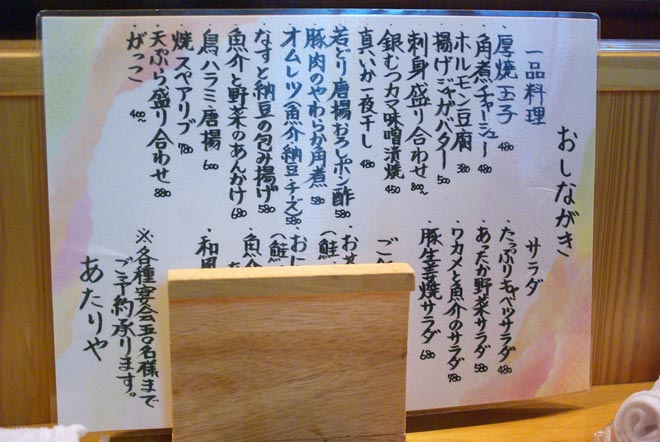 おしながき
一品料理
・厚焼玉子 480
・角煮チャーシュー 480
・ホルモン豆腐 380
・揚げジャガバター 500
・刺身盛り合わせ 800〜
・銀むつカマ味噌漬焼 450
・真いか一夜干し 480
・若どり唐揚おろしポン酢 580
・豚肉のやわらか角煮 580
・オムレツ(魚介・納豆・チーズ) 580
・なすと納豆の包み揚げ 580
・魚介と野菜のあんかけ 680
・鳥ハラミ唐揚 600
・焼スペアリブ 780
・天ぷら盛り合わせ 880
・がっこ 400〜
サラダ
・たっぷりキャベツサラダ 480
・あったか野菜サラダ 580
・ワカメと魚介のサラダ 780
・豚生姜焼サラダ 680
ご
・お茶
(鮭
・おに
(鮭
・魚介
・和風
※各種宴会五〇名様まで
ご予約承ります。
あたりや